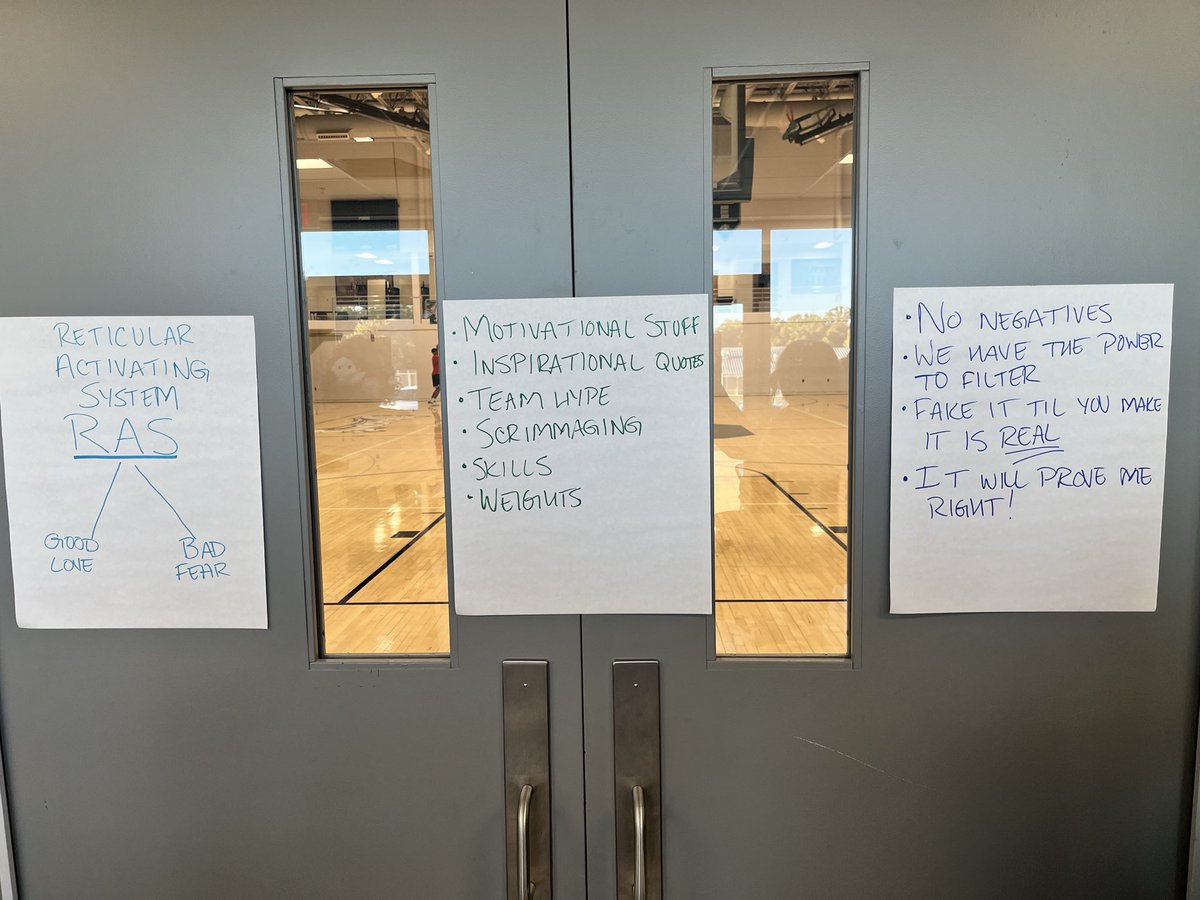 RETICULAR
ACTIVATING
SYSTEM
RAS
GOOD
LOVE
BAD
FEAR
• MOTIVATIONAL STUFF
• INSPIRATIONAL QUOTES
• TEAM HYPE
• SCRIMMAGING
• SKILLS
• WEIGHTS
• NO NEGATIVES
• WE HAVE THE POWER
TO FILTER
• FAKE IT TIL YOU MAKE
IT IS REAL
• IT WILL PROVE ME
RIGHT!